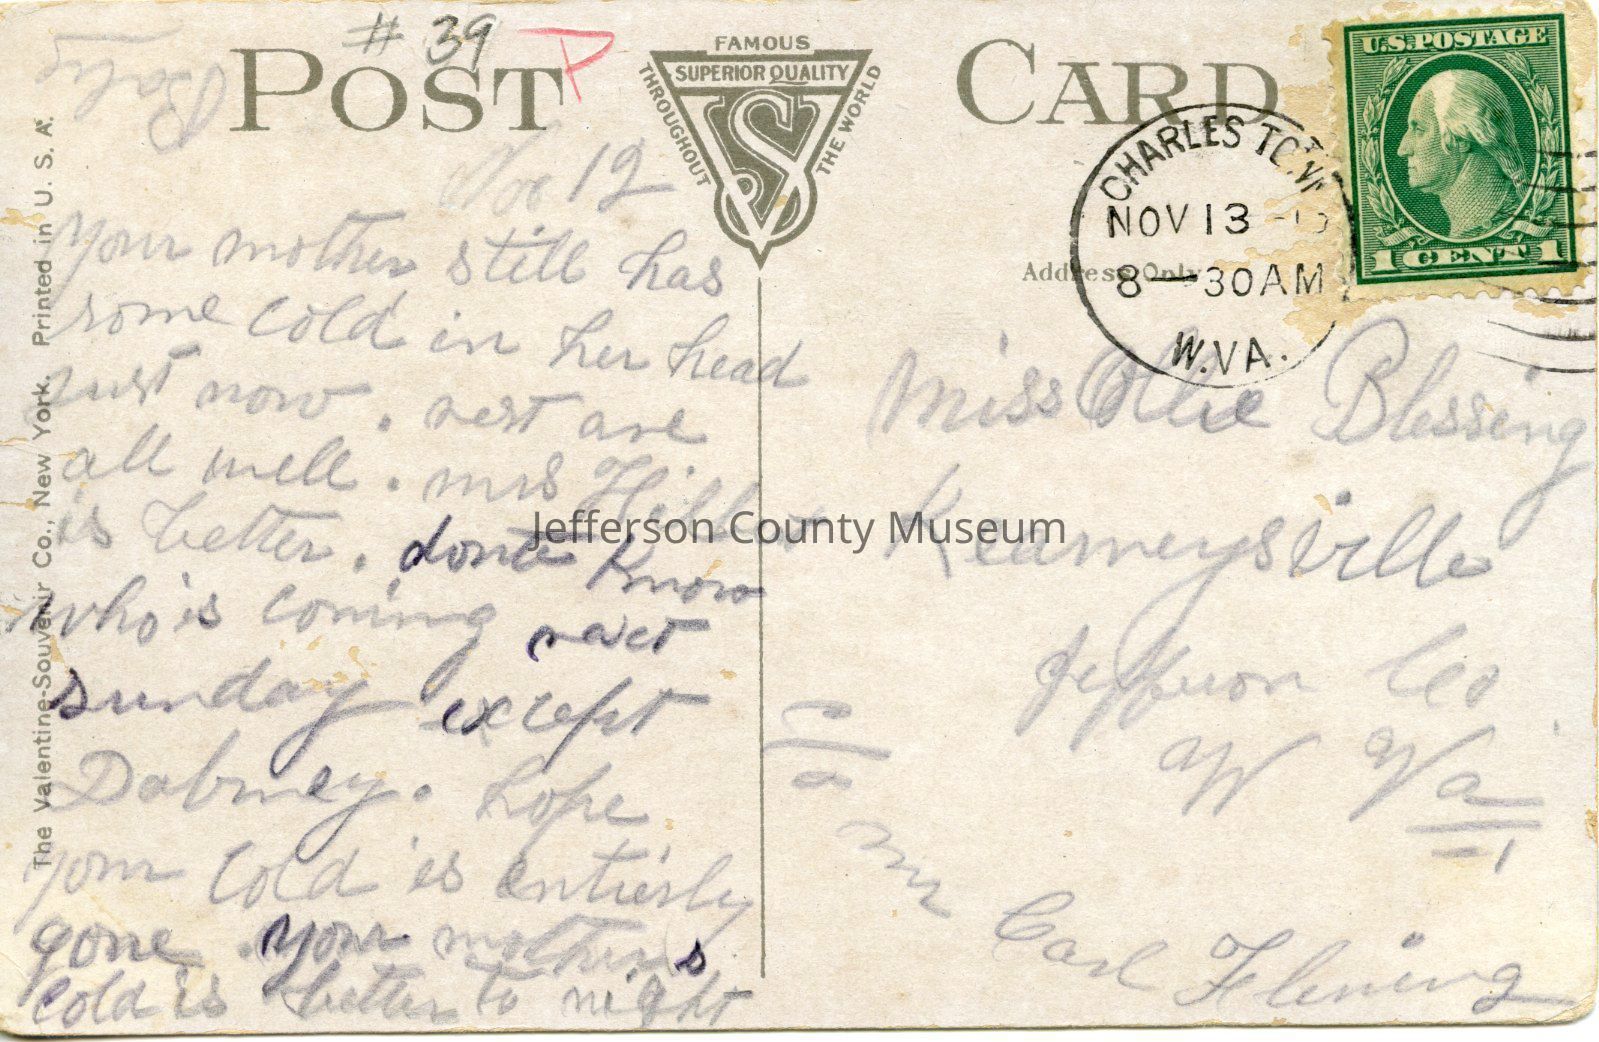 # 39
P
POST CARD
FAMOUS
SUPERIOR QUALITY
THROUGHOUT
THE WORLD
SV
The Valentine-Souvenir Co., New York. Printed in U. S. A.
U.S. POSTAGE
1 CENT 1
CHARLES TOWN
NOV 13
8—30AM
W.VA.
Address Only
Nov 12
your mother still has
some cold in her head
just now. rest are
all well. mrs Hill
is better. donte know
who is coming next
sunday except
Dabney. hope
your cold is entierly
gone. your mothers
cold is better to night
Miss Ollie Blessing
Kearneysville
Jefferson Co
W Va
c/o
mr Carl Fleming
Jefferson County Museum